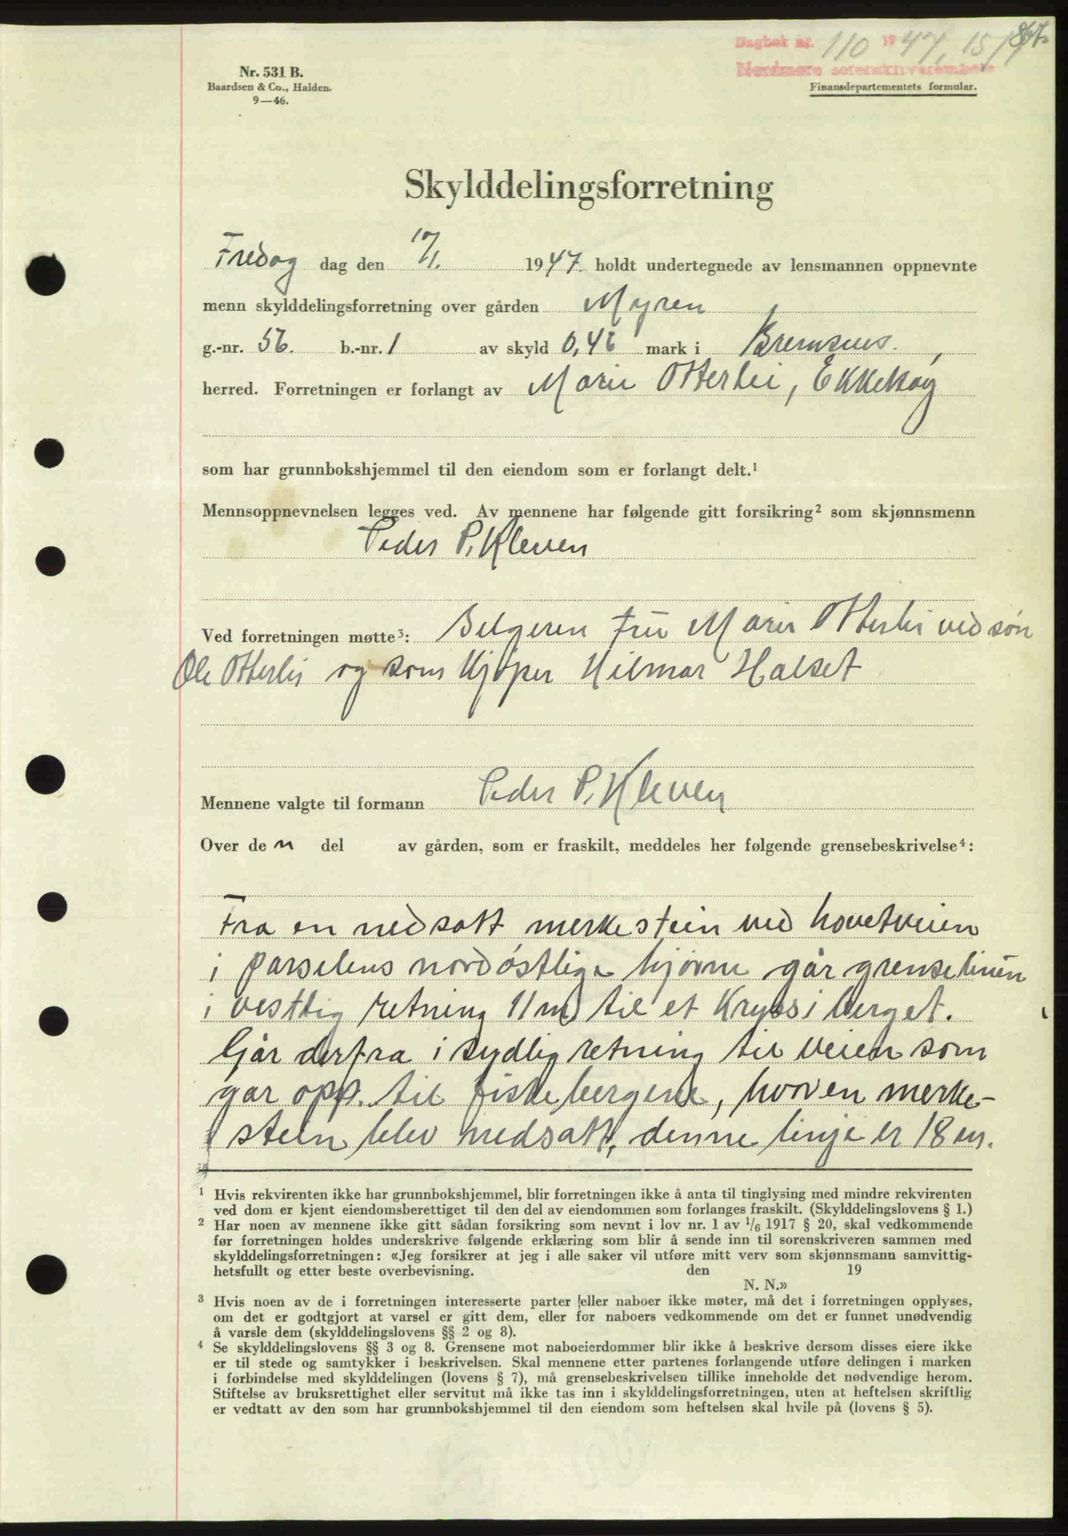 Dagbok nr. 110 1947, 15/1
867.
Nordmøre sorenskriverembete
Nr. 531 B.
Baardsen & Co., Halden.
9—46.
Finansdepartementets formular.
Skylddelingsforretning
Fredag dag den 10/1. 1947. holdt undertegnede av lensmannen oppnevnte
menn skylddelingsforretning over gården Myren
g.-nr. 56. b.-nr. 1 av skyld 0,46 mark i Bremsnes.,
herred. Forretningen er forlangt av Marie Otterlei, Ekkelsøy
som har grunnbokshjemmel til den eiendom som er forlangt delt.¹
Mennsoppnevnelsen legges ved. Av mennene har følgende gitt forsikring² som skjønnsmenn
Peder P. Kleven
Ved forretningen møtte³: Selgeren fru Marie Otterlei ved søn
Ole Otterlei og som kjøper Hilmar Halset
Mennene valgte til formann Peder P. Kleven
Over de n del av gården, som er fraskilt, meddeles her følgende grensebeskrivelse⁴:
Fra en nedsatt merkestein ved hovetveien
i parselens nordøstlige hjørne går grenselinien
i vestlig retning 11 m til et kryss i berget.
Går derfra i sydlig retning til veien som
går opp. til fiskebergene, hvor en merke-
stein blev nedsatt, denne linje er 18 m.
¹ Hvis rekvirenten ikke har grunnbokshjemmel, blir forretningen ikke å anta til tinglysing med mindre rekvirenten
ved dom er kjent eiendomsberettiget til den del av eiendommen som forlanges fraskilt. (Skylddelingslovens § 1.)
² Har noen av mennene ikke gitt sådan forsikring som nevnt i lov nr. 1 av 1/6 1917 § 20, skal vedkommende
før forretningen holdes underskrive følgende erklæring som blir å sende inn til sorenskriveren sammen med
skylddelingsforretningen: «Jeg forsikrer at jeg i alle saker vil utføre mitt verv som skjønnsmann samvittig-
hetsfullt og etter beste overbevisning. den 19
N. N.»
³ Hvis noen av de i forretningen interesserte parter eller naboer ikke møter, må det i forretningen opplyses,
om det er godtgjort at varsel er gitt dem, eller for naboers vedkommende om det er funnet unødvendig
å varsle dem (skylddelingslovens §§ 2 og 8).
⁴ Se skylddelingslovens §§ 3 og 8. Grensene mot naboeierdommer blir ikke å beskrive dersom disses eiere ikke
er til stede og samtykker i beskrivelsen. Skal mennene etter partenes forlangende utføre delingen i marken
i forbindelse med skylddelingen (lovens § 7), må grensebeskrivelsen tillike inneholde det nødvendige herom.
Stiftelse av bruksrettighet eller servitut må ikke tas inn i skylddelingsforretningen, uten at heftelsen skriftlig
er vedtatt av den som har grunnbokshjemmel til den eiendom som heftelsen skal hvile på (lovens § 5).